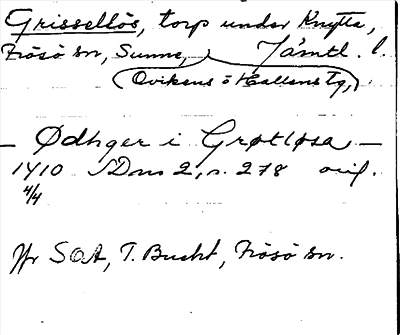 Grissellös, torp under Knytta,
Frösö sn, Sunne, Jämtl. l.
(Ovikens o Hallens tg,)
— Ødhger i Grøtløsa —
1410 SDns 2, s. 278 orig.
4/4
Jfr SOA, T. Bucht, Frösö sn.